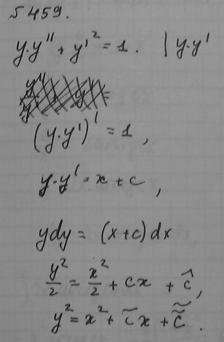 №459.
y·y'' + y'² = 1. | y·y'
(y·y')' = 1,
y·y' = x + c,
ydy = (x+c)dx
y²/2 = x²/2 + cx + ĉ,
y² = x² + c̃x + c̃̃.